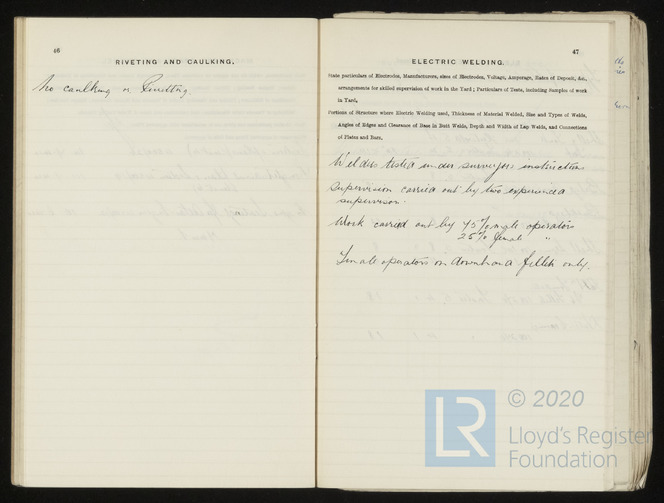 46
RIVETING AND CAULKING.
No caulking or Rivetting
47
ELECTRIC WELDING.
State particulars of Electrodes, Manufacturers, sizes of Electrodes, Voltage, Amperage, Rates of Deposit, &c.,
arrangements for skilled supervision of work in the Yard; Particulars of Tests, including Samples of work
in Yard.
Portions of Structure where Electric Welding used, Thickness of Material Welded, Size and Types of Welds,
Angles of Edges and Clearance of Base in Butt Welds, Depth and Width of Lap Welds, and Connections
of Plates and Bars.
Welders tested under surveyors instruction
Supervision carried out by two experienced
supervisors.
Work carried out by 75% male operators
25% female "
Female operators on downhand fillets only.
LR
© 2020
Lloyd's Register
Foundation